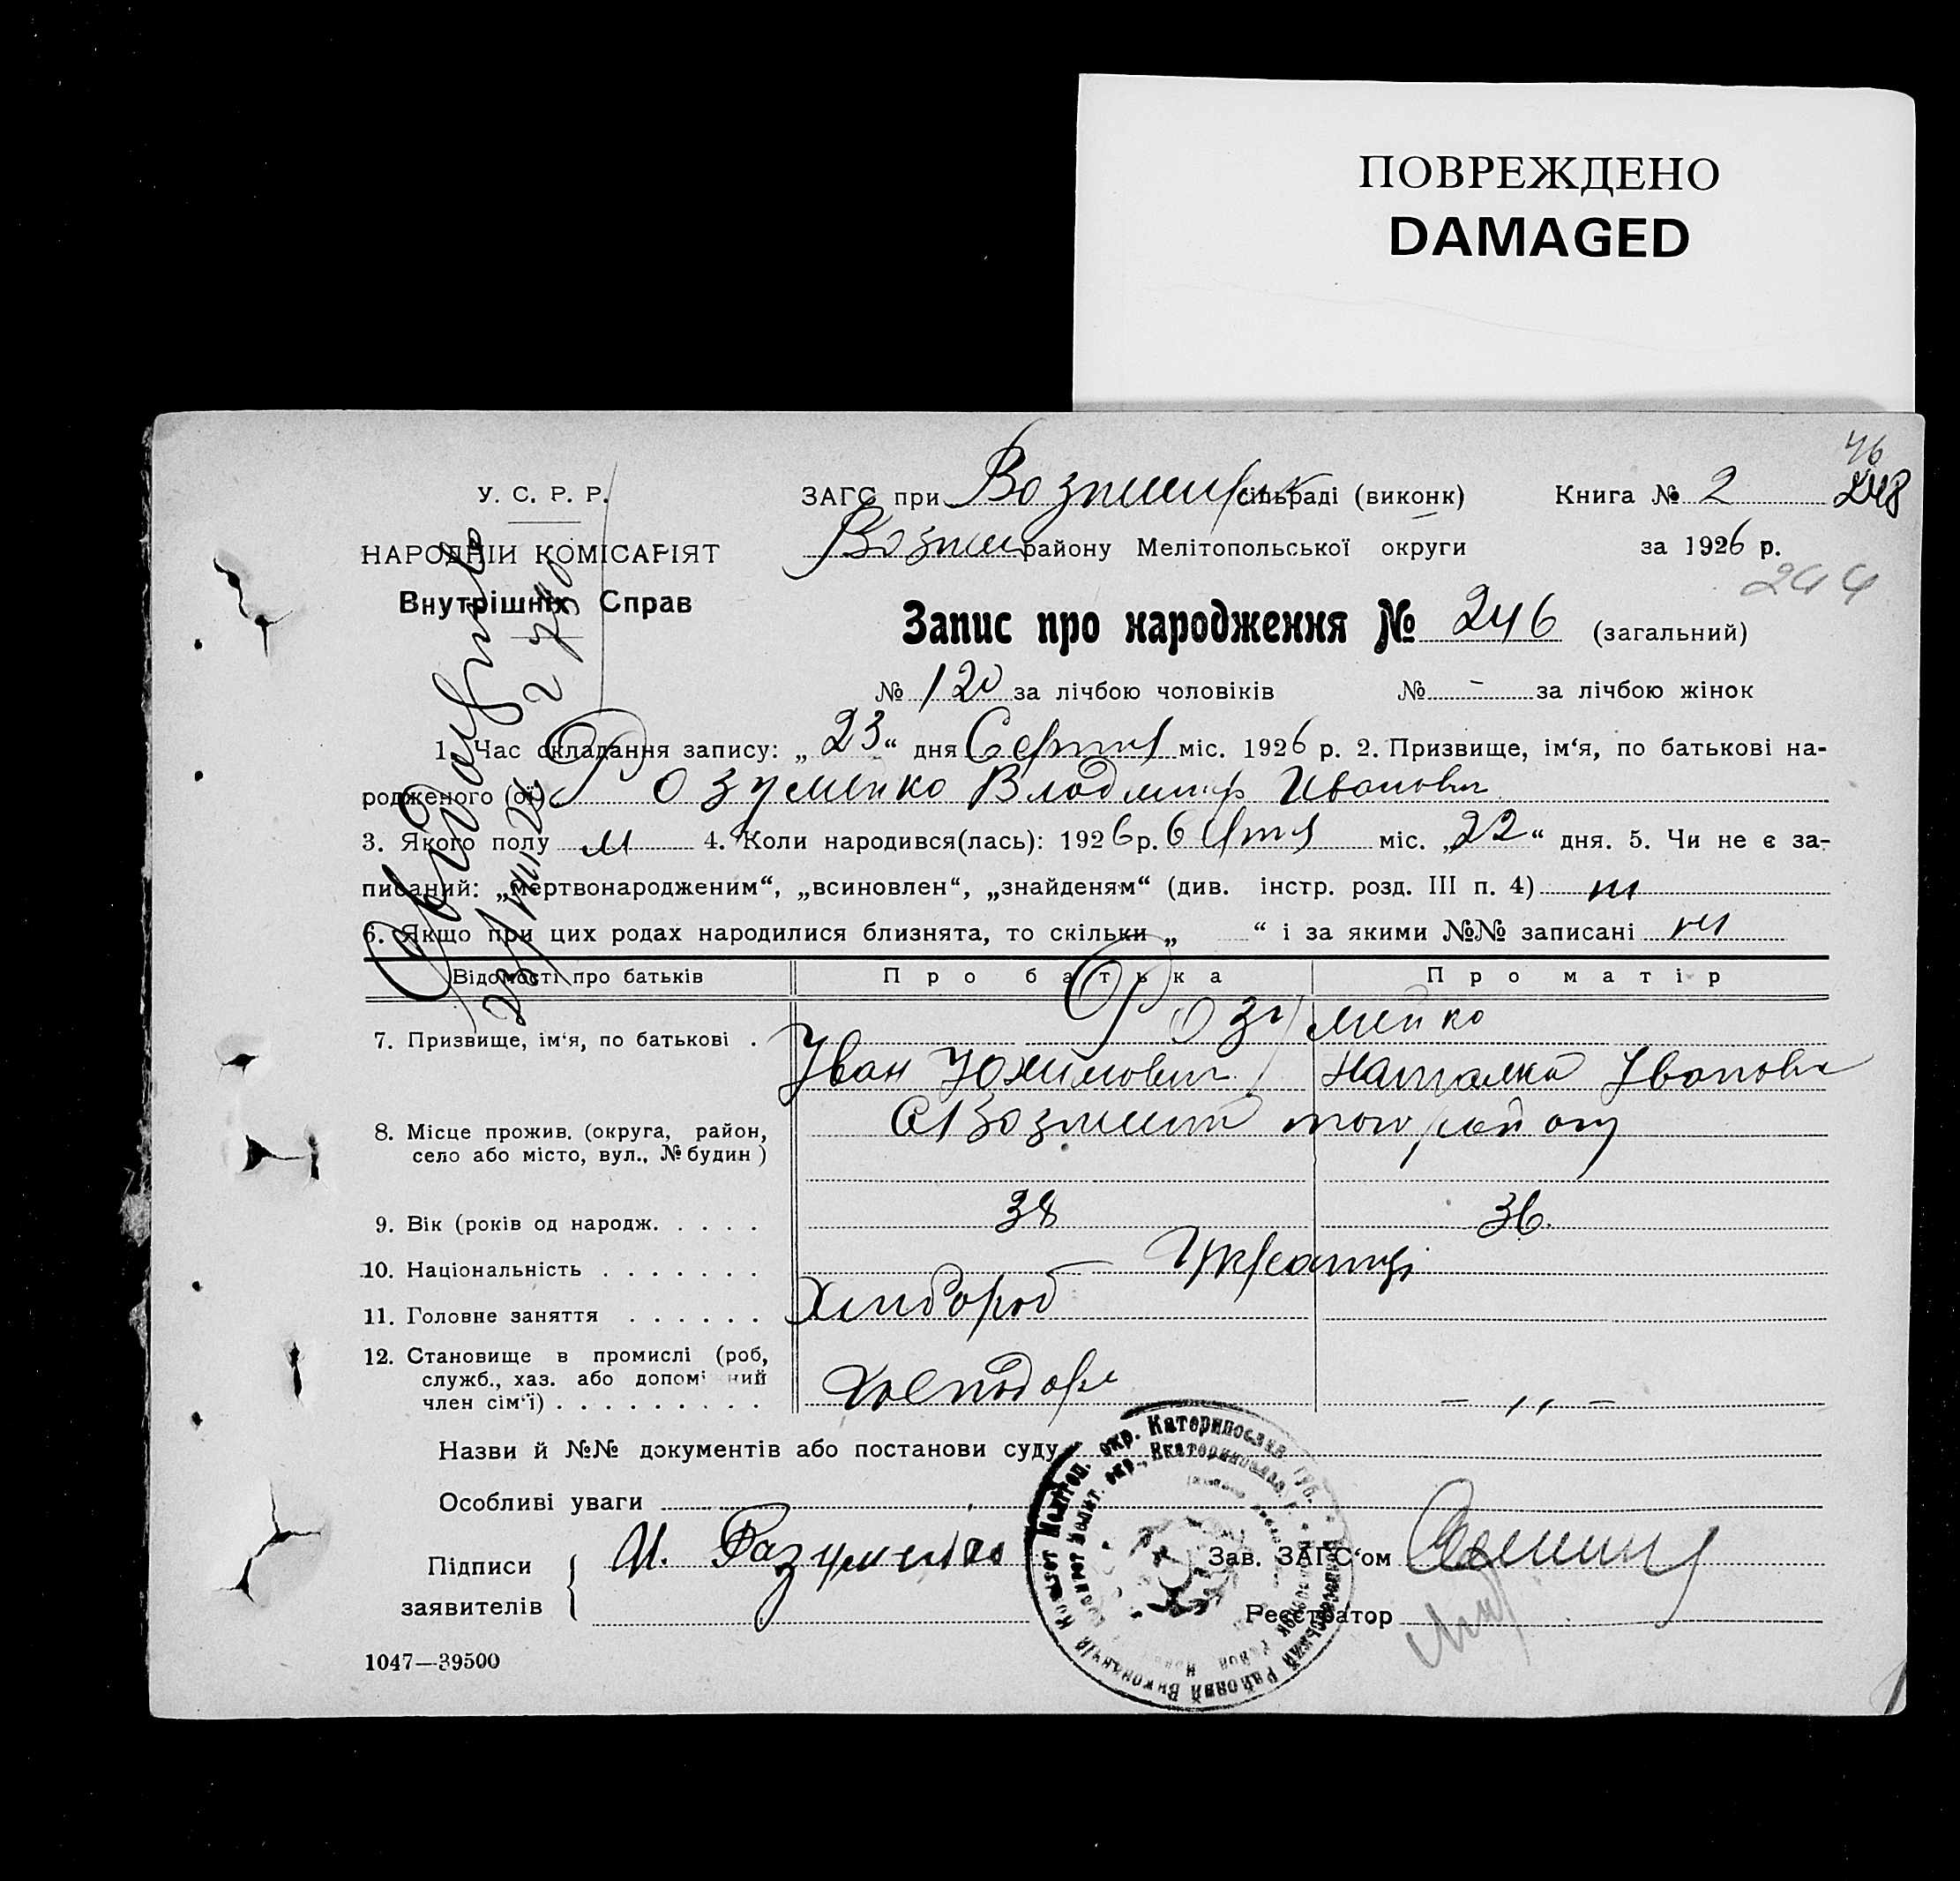 ПОВРЕЖДЕНО
DAMAGED
46
248
У. С. Р. Р.
НАРОДНІЙ КОМІСАРІЯТ
Внутрішніх Справ
ЗАГС при сільраді (виконк) Книга № 2
району Мелітопольської округи за 1926 р.
244
Запис про народження № 246 (загальний)
№ 120 за лічбою чоловіків № - за лічбою жінок
1. Час складання запису: „ 23 “ дня міс. 1926 р. 2. Призвище, ім‘я, по батькові на-
родженого (ої) Розумейко Владимир Иванович
3. Якого полу м 4. Коли народився(лась): 1926 р. міс. „ 22 “ дня. 5. Чи не є за-
писаний: „мертвонародженим“, „всиновлен“, „знайденям“ (див. інстр. розд. III п. 4)
6. Якщо при цих родах народилися близнята, то скільки „ “ і за якими №№ записані
Відомості про батьків Про батька Про матір
7. Призвище, ім‘я, по батькові . Розумейко
Іван Юхимович Наталка Івановн
8. Місце прожив. (округа, район, того району
село або місто, вул., № будин )
9. Вік (років од народж. . . . . 38 36
10. Національність . . . . . . . Українці
11. Головне заняття . . . . . . Хлибороб
12. Становище в промислі (роб,
служб., хаз. або допоміжний Господарь - „ -
член сім‘ї) . . . . . . . . .
Назви й №№ документів або постанови суду
Особливі уваги
Підписи И. Разумейко Зав. ЗАГС‘ом
заявителів Реєстратор
1047—39500